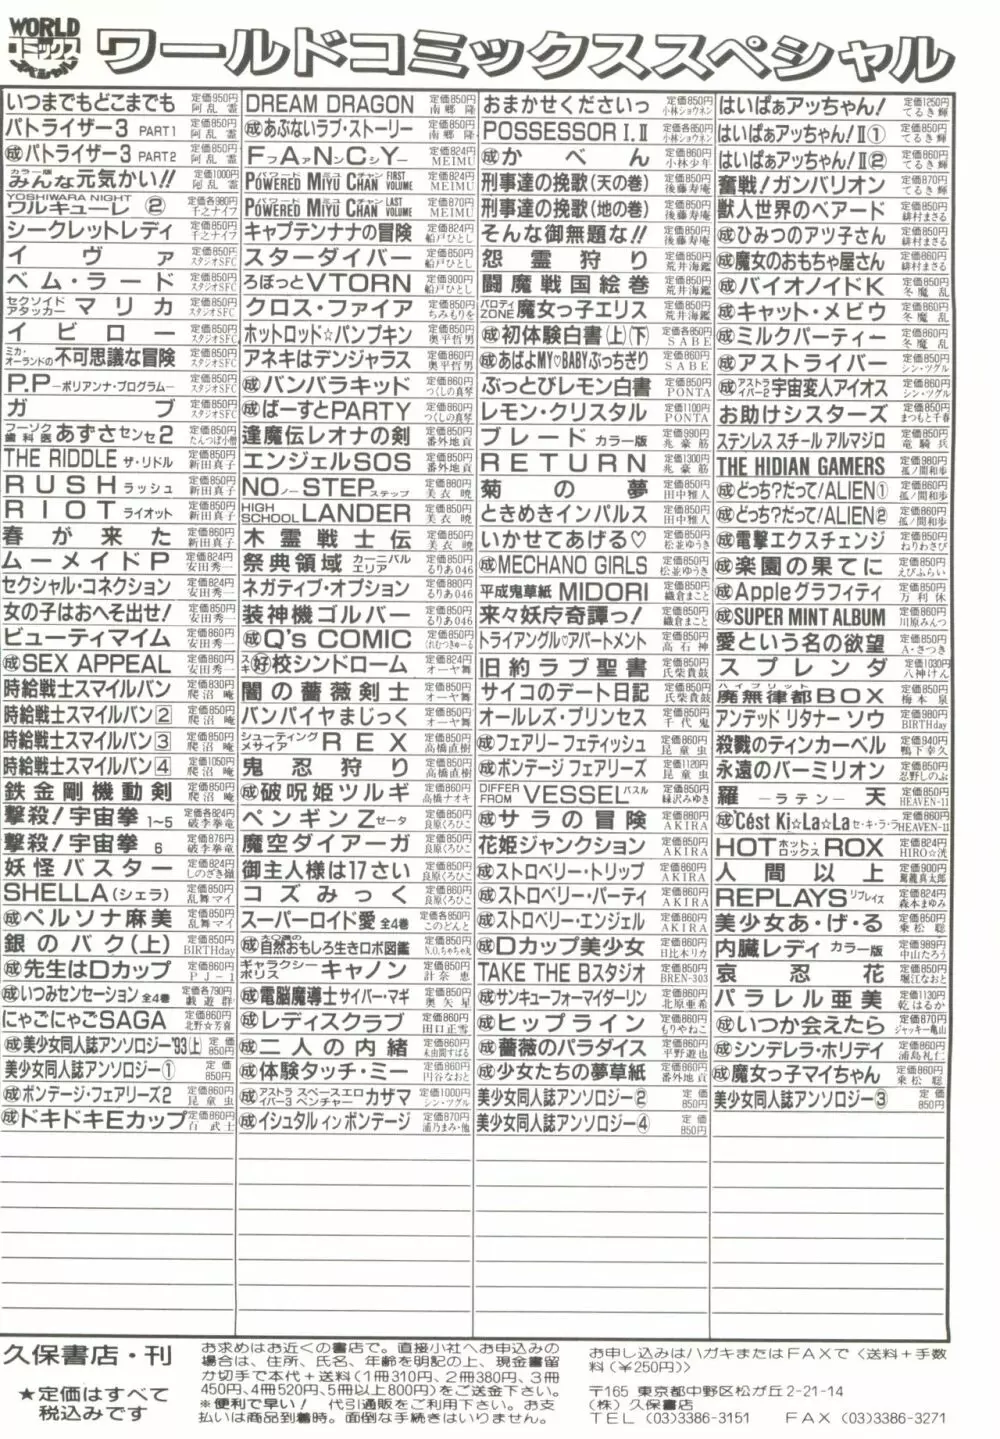 WORLD
コミックス
スペシャル
ワールドコミックススペシャル
いつまでもどこまでも 定価950円 阿乱霊
パトライザー3 PART1 定価850円 阿乱霊
成パトライザー3 PART2 定価850円 阿乱霊
カラー版 みんな元気かい!! 定価1000円 阿乱霊
YOSHIWARA NIGHT ワルキューレ ② 定価各980円 千之ナイフ
シークレットレディ 定価850円 千之ナイフ
イヴァ 定価850円 スタジオSFC
ベム・ラード 定価850円 スタジオSFC
セクソイドアタッカー マリカ 定価850円 スタジオSFC
イビロー 定価850円 スタジオSFC
ミカ・オーランドの不可思議な冒険 定価850円 スタジオSFC
P.P −ポリアンナ・プログラム− 定価850円 スタジオSFC
ガブ 定価850円 スタジオSFC
フーゾク歯科医 あずさセンセ2 定価850円 たんつぼ小僧
THE RIDDLE ザ・リドル 定価850円 新田真子
RUSH ラッシュ 定価850円 新田真子
RIOT ライオット 定価850円 新田真子
春が来た 定価860円 安田秀一
ムーメイドP 定価824円 安田秀一
セクシャル・コネクション 定価824円 安田秀一
女の子はおへそ出せ! 定価850円 安田秀一
ビューティマイム 定価860円 安田秀一
成SEX APPEAL 定価860円 安田秀一
時給戦士スマイルバン 定価830円 爬沼庵
時給戦士スマイルバン2 定価850円 爬沼庵
時給戦士スマイルバン3 定価850円 爬沼庵
時給戦士スマイルバン4 定価1050円 爬沼庵
鉄金剛機動剣 定価850円 爬沼庵
撃殺!宇宙拳 1~5 定価各824円 破李拳竜
撃殺!宇宙拳 6 定価876円 破李拳竜
妖怪バスター 定価824円 しのざき嶺
SHELLA(シェラ) 定価850円 乱舞マイ
成ペルソナ麻美 定価850円 乱舞マイ
銀のバク(上) 定価850円 BIRTHday
成先生はDカップ 定価860円 PJ-1
成いつみセンセーション 全4巻 定価各790円 戯遊群
にゃごにゃごSAGA 定価860円 北野☆芳喜
成美少女同人誌アンソロジー'93(上) 定価850円
美少女同人誌アンソロジー① 定価850円
成ボンデージ・フェアリーズ2 定価860円 昆童虫
成ドキドキEカップ 定価860円 百武士
DREAM DRAGON 定価850円 南郷隆
成あぶないラブ・ストーリー 定価850円 南郷隆
FァAンNシCィY 定価824円 MEIMU
POWERED MIYU CHAN FIRST VOLUME 定価824円 MEIMU
POWERED MIYU CHAN LAST VOLUME 定価870円 MEIMU
キャプテンナナの冒険 定価824円 船戸ひとし
スターダイバー 定価850円 船戸ひとし
ろぼっとVTORN 定価900円 船戸ひとし
クロス・ファイア 定価850円 ちみもりを
ホットロッド☆パンプキン 定価850円 奥平哲男
アネキはデンジャラス 定価860円 奥平哲男
成バンバラキッド 定価850円 つくしの真琴
成ばーすとPARTY 定価860円 つくしの真琴
逢魔伝レオナの剣 定価850円 番外地貢
エンジェルSOS 定価850円 番外地貢
NOノー STEPステップ 定価850円 美衣暁
HIGH SCHOOL LANDER 定価850円 美衣暁
木霊戦士伝 定価850円 美衣暁
祭典領域 カーニバルエリア 定価850円 るりあ046
ネガティブ・オプション 定価880円 るりあ046
装神機ゴルバー 定価850円 るりあ046
成Q'S COMIC 定価850円 (れむつきゅーる
スキ好校シンドローム 定価824円 オーヤ舞
闇の薔薇剣士 定価850円 オーヤ舞
バンパイヤまじっく 定価850円 オーヤ舞
シューティングメサイア REX 定価850円 高橋直樹
鬼忍狩り 定価850円 高橋直樹
成破呪姫ツルギ 定価860円 高橋ナオキ
ペンギンZゼータ 定価850円 良原くろひこ
魔空ダイアーガ 定価850円 良原くろひこ
御主人様は17さい 定価850円 良原くろひこ
コズみっく 定価860円 良原くろひこ
スーパーロイド愛 全4巻 定価各850円 このどんと
成自然おもしろ生きロボ図鑑 定価850円 N.O.ちゃちゃ丸
ギャラクシーポリス キャノン 定価860円 計奈恵
成電脳魔導士サイバー・マギ 定価850円 奥矢星
成レディスクラブ 定価860円 田口正雪
成二人の内緒 定価860円 未由間すばる
成体験タッチ・ミー 定価860円 円谷なおと
成アストライバー3 スペースエロベンチャー カザマ 定価1000円 シン・ツグル
成イシュタル イン ボンデージ 定価870円 浦乃まみ・他
おまかせくださいっ 定価850円 小林ショウネン
POSSESSOR I.II 定価各850円 小林少年
成かべん 定価860円 小林少年
刑事達の挽歌(天の巻) 定価850円 後藤寿庵
刑事達の挽歌(地の巻) 定価850円 後藤寿庵
そんな御無題な!! 定価850円 後藤寿庵
怨霊狩り 定価850円 荒井海鑑
闘魔戦国絵巻 定価850円 荒井海鑑
パロディZONE 魔女っ子エリス 定価850円 荒井海鑑
成初体験白書(上)(下) 定価各850円 SABE
成あばよMY♡BABYぶっちぎり 定価860円 SABE
ぶっとびレモン白書 定価850円 PONTA
レモン・クリスタル 定価1100円 PONTA
ブレード カラー版 定価990円 兆豪筋
RETURN 定価1300円 兆豪筋
菊の夢 定価850円 田中雅人
ときめきインパルス 定価850円 田中雅人
いかせてあげる♡ 定価850円 松並ゆうき
成MECHANO GIRLS 定価860円 松並ゆうき
平成鬼草紙 MIDORI 定価850円 織倉まこと
来々妖斉奇譚っ! 定価850円 織倉まこと
トライアングル♡アパートメント 定価850円 高石神
旧約ラブ聖書 定価850円 氏柴貴鼓
サイコのデート日記 定価850円 氏柴貴鼓
オールレズ・プリンセス 定価850円 千代鬼
成フェアリー フェティッシュ 定価850円 昆童虫
成ボンデージ フェアリーズ 定価1120円 昆童虫
DIFFER FROM VESSELバスル 定価850円 緑沢みゆき
成サラの冒険 定価850円 AKIRA
花姫ジャンクション 定価850円 AKIRA
成ストロベリー・トリップ 定価850円 AKIRA
成ストロベリー・パーティ 定価860円 AKIRA
成ストロベリー・エンジェル 定価850円 AKIRA
成Dカップ美少女 定価860円 日比木リカ
TAKE THE Bスタジオ 定価850円 BREN-303
成サンキューフォーマイダーリン 定価860円 北原亜希
成ヒップライン 定価860円 もりやねこ
成薔薇のパラダイス 定価850円 平野遊也
成少女たちの夢草紙 定価860円 番外地貢
美少女同人誌アンソロジー② 定価850円
美少女同人誌アンソロジー④ 定価850円
はいぱぁアッちゃん! 定価1250円 てるき輝
はいぱぁアッちゃん!II① 定価850円 てるき輝
はいぱぁアッちゃん!II② 定価860円 てるき輝
奮戦!ガンバリオン 定価870円 てるき輝
獣人世界のベアード 定価850円 緋村まさる
成ひみつのアツ子さん 定価850円 緋村まさる
成魔女のおもちゃ屋さん 定価860円 緋村まさる
成バイオノイドK 定価850円 冬魔乱
成キャット・メビウ 定価850円 冬魔乱
成ミルクパーティー 定価850円 冬魔乱
成アストライバー 定価850円 シン・ツグル
成アストライバー2 宇宙変人アイオス 定価860円 シン・ツグル
お助けシスターズ 定価850円 まつもと千春
ステンレス スチール アルマジロ 定価850円 竜騎兵
THE HIDIAN GAMERS 定価980円 孤ノ間和歩
成どっち?だって!ALIEN① 定価850円 孤ノ間和歩
成どっち?だって!ALIEN② 定価860円 孤ノ間和歩
成電撃エクスチェンジ 定価850円 ねりわさび
成楽園の果てに 定価860円 えびふらい
成Appleグラフィティ 定価850円 万利休
成SUPER MINT ALBUM 定価860円 川原みんつ
愛という名の欲望 定価850円 A・さつき
スプレンダ 定価1030円 八神けん
ハイブリット 廃無律都BOX 定価850円 梅本泉
アンデッド リタナー ソウ 定価980円 BIRTHday
殺戮のティンカーベル 定価940円 鴨下幸久
永遠のバーミリオン 定価850円 忍野しのぶ
羅−ラテン−天 定価850円 HEAVEN-11
成'Cést Ki☆La☆La セ・キ・ラ・ラ 定価860円 HEAVEN-11
HOTホット・ロックスROX 定価824円 HIRO☆洸
人間以上 定価900円 駕籠真太郎
REPLAYS リプレイス 定価824円 森本まゆみ
美少女あ・げ・る 定価850円 乗松聡
内臓レディ カラー版 定価989円 中山たろう
哀忍花 定価850円 堀江なおと
パラレル亜美 定価1130円 乾はるか
成いつか会えたら 定価870円 ジャッキー亀山
成シンデレラ・ホリデイ 定価850円 浦島礼仁
成魔女っ子マイちゃん 定価860円 乗松聡
美少女同人誌アンソロジー③ 定価850円
久保書店・刊
★定価はすべて
税込みです
お求めはお近くの書店で。直接小社へお申込みの
場合は、住所、氏名、年齢を明記の上、現金書留
か切手で本代+送料(1冊310円、2冊380円、3冊
450円、4冊520円、5冊以上800円)をご送金下さい。
※便利で早い! 代引通販をご利用下さい。お支
払いは商品到着時。面倒な手続きはいりません。
お申し込みはハガキまたはFAXで〈送料+手数
料(¥250円)〉
〒165 東京都中野区松が丘2-21-14
(株)久保書店
TEL (03)3386-3151 FAX (03)3386-3271